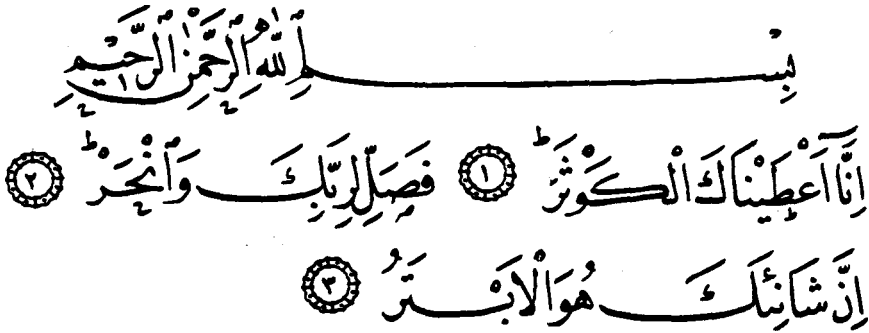 بِسْمِ ٱللّٰهِ ٱلرَّحْمٰنِ ٱلرَّحِيْمِ
اِنَّآ اَعْطَيْنَاكَ الْكَوْثَرَ ۝١ فَصَلِّ لِرَبِّكَ وَٱنْحَرْ ۝٢
اِنَّ شَانِئَكَ هُوَالْاَبْتَرُ ۝٣